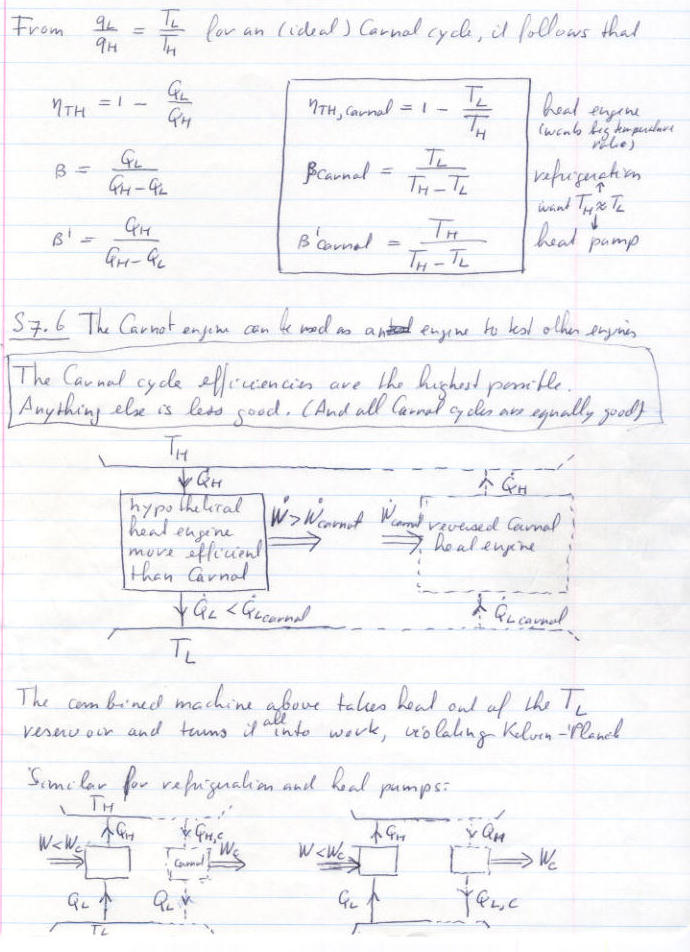 From qL/qH = TL/TH for an (ideal) Carnot cycle, it follows that
ηTH = 1 - QL/QH
ηTH,carnot = 1 - TL/TH
heat engine
(wants big temperature
ratio)
β = QL/(QH-QL)
βcarnot = TL/(TH-TL)
refrigeration
want TH ≈ TL
β' = QH/(QH-QL)
β'carnot = TH/(TH-TL)
heat pump
S7.6 The Carnot engine can be used as an engine to test other engines
The Carnot cycle efficiencies are the highest possible.
Anything else is less good. (And all Carnot cycles are equally good)
TH
Q̇H
Q̇H
hypothetical
heat engine
more efficient
than Carnot
Ẇ > Ẇcarnot
Ẇcarnot
reversed Carnot
heat engine
Q̇L < Q̇Lcarnot
Q̇Lcarnot
TL
The combined machine above takes heat out of the TL
reservoir and turns it all into work, violating Kelvin-Planck
Similar for refrigeration and heat pumps:
TH
QH
QH,C
QH
QH
W<Wc
Carnot
Wc
W<Wc
Wc
QL
QL
QL
QL,C
TL